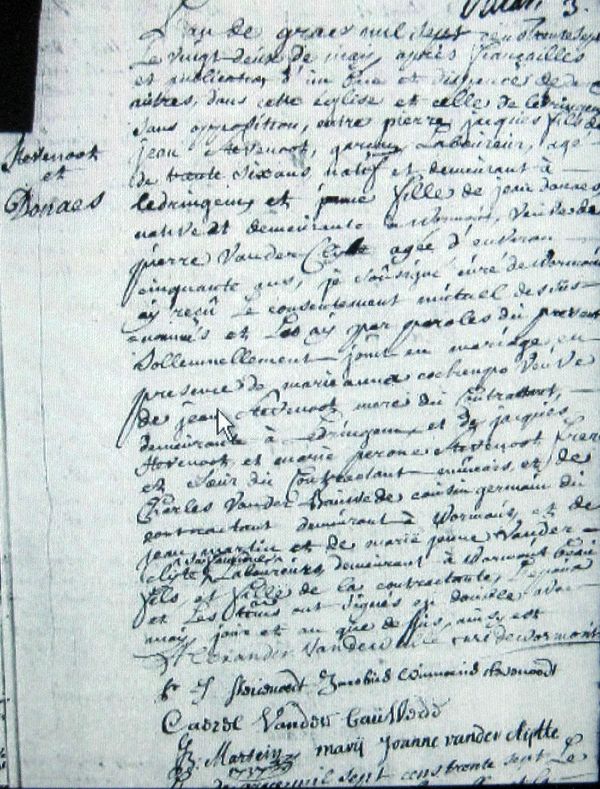 L'an de grace mil sept cens trente sept
Le vingt deux de may, après fiançailles
et publication d'un ban et dispences de
autres, dans cette église et celle de Ledringem
sans opposition, entre pierre jacques fils de
Stevenoot
et
Donaes
jean Stevenoot, garçon Laboureur, agé
de trente six ans natif et demeurant à
Ledringem, et jeanne fille de jean donaes
native et demeurante à Wormout, veuve de
pierre Vander Clitte agée d'environ
cinquante ans, je soûsigné curé de Wormout
ay reçû le consentement mutuel des sus
nommés et les ay par paroles du present
sollemnellement joint en mariage en
presence de marie anna veuve
de jean Stevenoot mere du Contractant,
demeurante à Ledringem et de jacques
Stevenoot, et marie perone Stevenoot frere
et sœur du Contractant et de
Charles Vander cousin germain du
contractant demeurant à Wormout, et de
jean martin et de marie jeanne Vander
clijtte Laboureurs demeurant à Wormout beau
fils et fille de la contractante,
et Les tous ont signés en double avec
moy, jour et an que dessus, ainsy est
curé de Wormout
Stevenoodt Jacobus Stevenoodt
Caerel Vander
J. Martein marij Joanne vander clijtte
1737
de grace mil sept cens trente sept Le